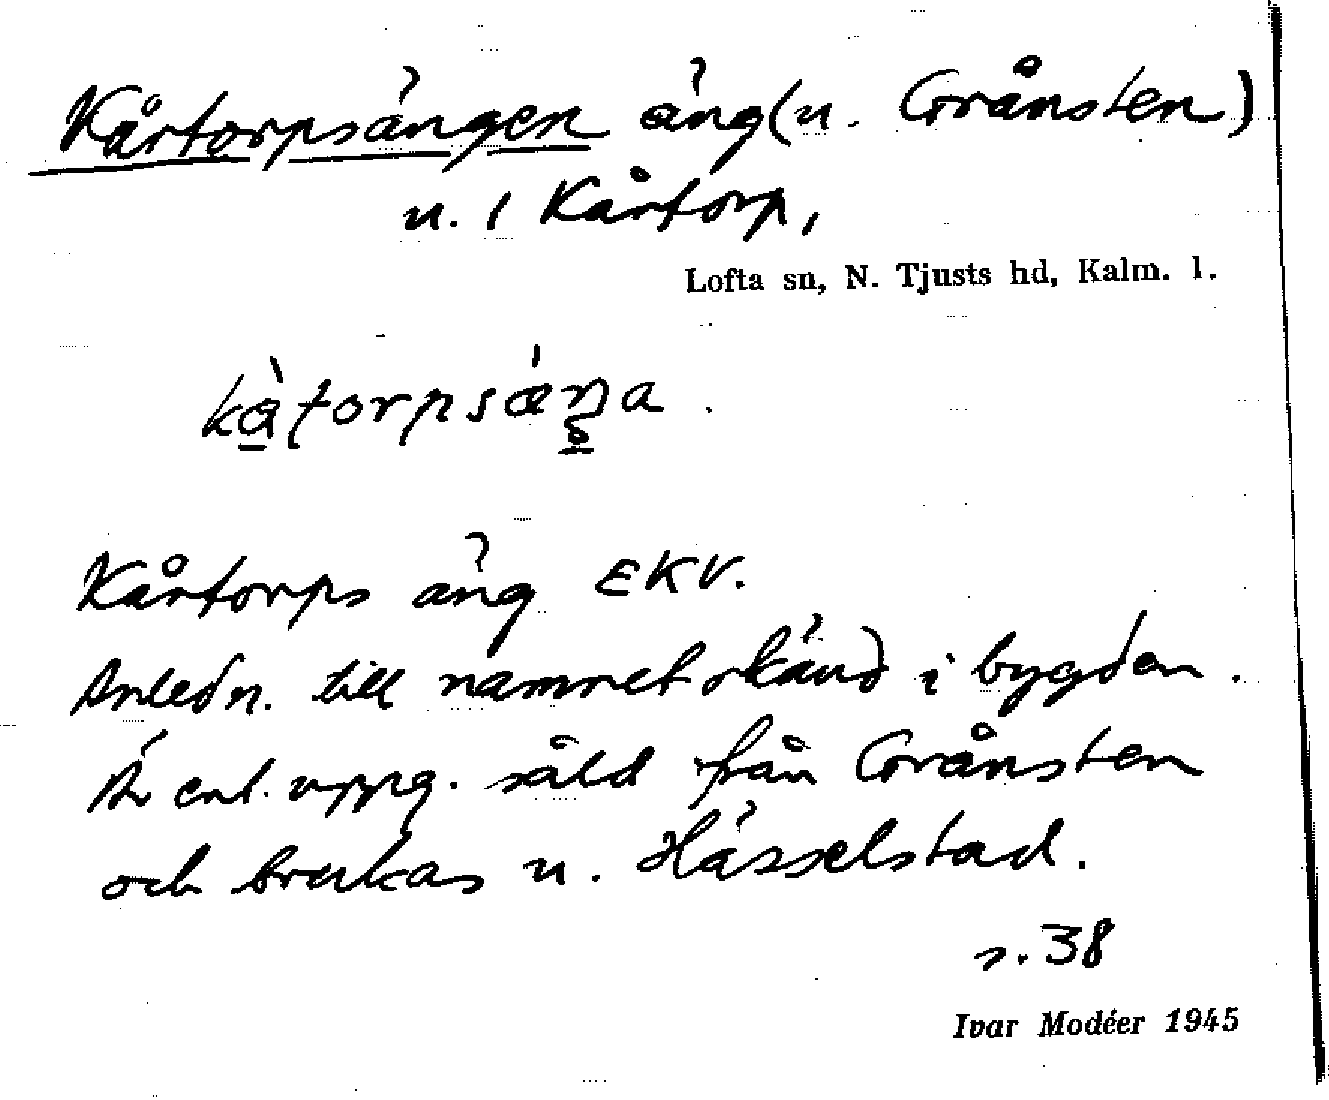 Kårtorpsängen äng (u. Grånsten)
u. 1 Kårtorp,
Lofta sn, N. Tjusts hd, Kalm. l.
Kårtorps äng EKV.
Anledn. till namnet okänd i bygden.
Är enl. uppg. såld från Grånsten
och brukas u. Hässelstad.
s. 38
Ivar Modéer 1945